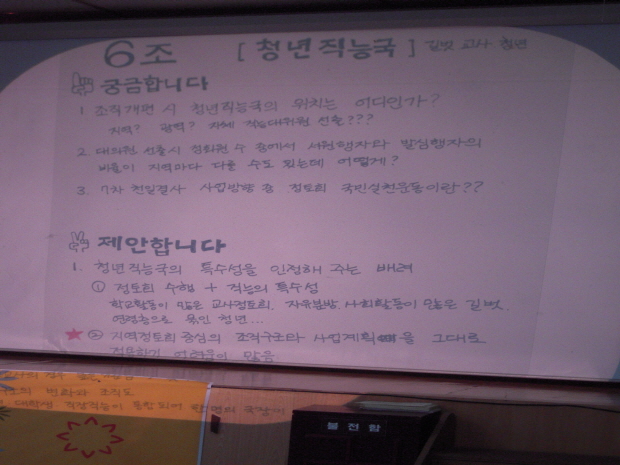 6조 [청년직능국] 길벗 교사 청년
궁금합니다
1. 조직개편 시 청년직능국의 위치는 어디인가?
지역? 광역? 자체 직능대위원 선출???
2. 대의원 선출시 정회원 수 중에서 서원행자와 발심행자의
비율이 지역마다 다를 수도 있는데 어떻게?
3. 7차 천일결사 사업방향 중 정토회 국민실천운동이란??
제안합니다
1. 청년직능국의 특수성을 인정해 주는 배려
① 정토회 수행 + 직능의 특수성
학교활동이 많은 교사정토회, 자유분방, 사회활동이 많은 길벗,
연령층으로 묶인 청년...
★ ② 지역정토회 중심의 조직구조와 사업계획을 그대로
적용하기 어려움이 많음
변화와 조직도
대학생, 직장직능이 통합되어
불전함